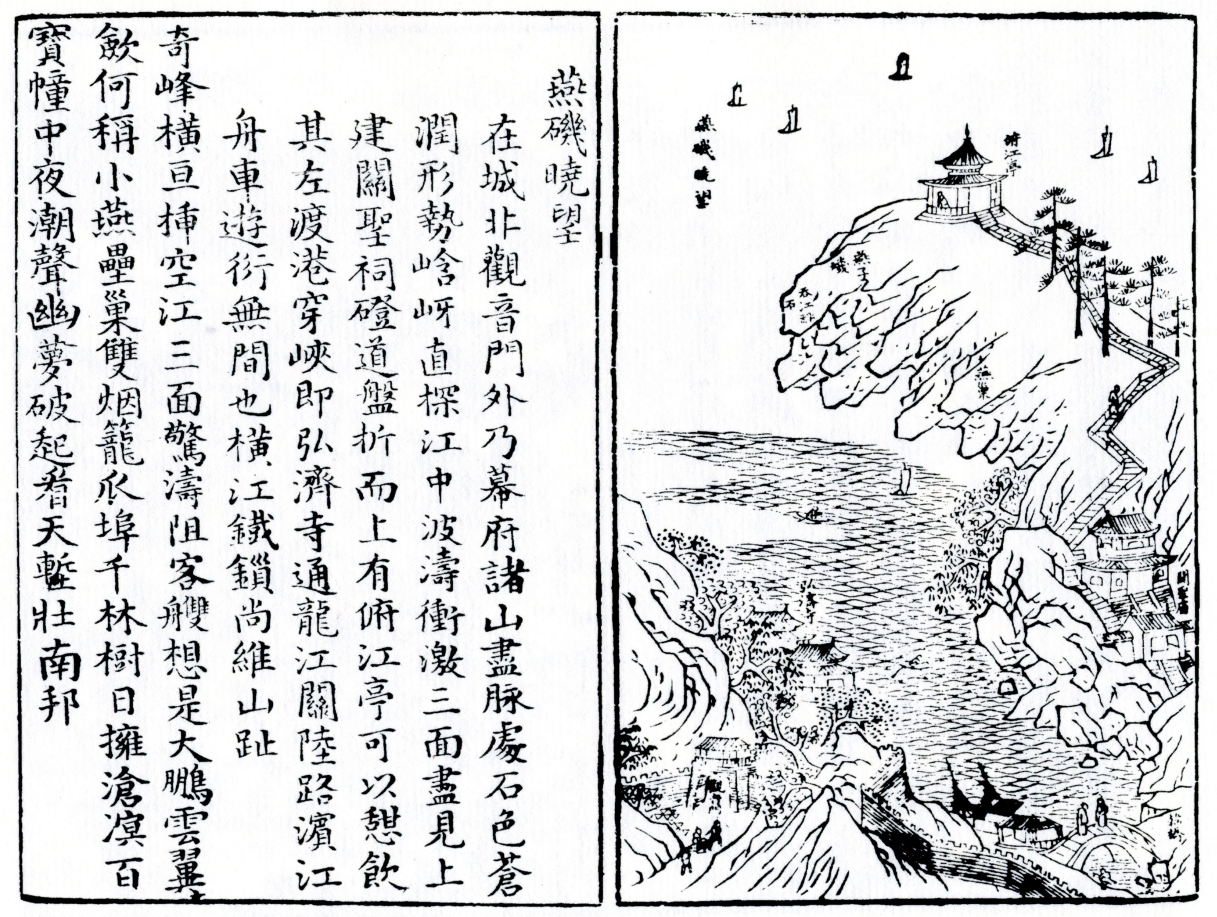 燕磯曉望
在城北觀音門外乃幕府諸山盡脉處石色蒼
潤形勢崯岈直探江中波濤衝激三面盡見上
建關聖祠磴道盤折而上有俯江亭可以憇飲
其左渡港穿峽即弘濟寺通龍江關陸路濱江
舟車遊衍無間也橫江鐵鎖尚維山趾
奇峰橫亘揷空江三面驚濤阻客艭想是大鵬雲翼
歛何稱小燕壘巢雙烟籠瓜埠千林樹日擁滄溟百
寶幢中夜潮聲幽夢破起看天塹壯南邦
俯江亭
燕磯曉望
燕子磯
燕巢
關聖廟
觀音門